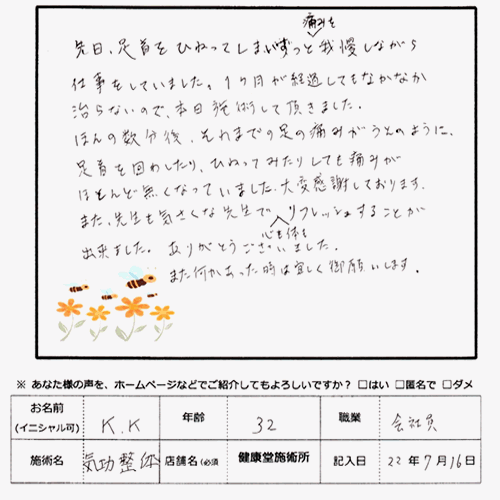 先日、足首をひねってしまいずっと痛みを我慢しながら
仕事をしていました。1ヶ月が経過してもなかなか
治らないので、本日施術して頂きました。
ほんの数分後、それまでの足の痛みがうそのように、
足首を回わしたり、ひねってみたりしても痛みが
ほとんど無くなっていました。大変感謝しております。
また、先生も気さくな先生で心も体もリフレッシュすることが
出来ました。ありがとうございました。
また何かあった時は宜しく御願いします。
※ あなた様の声を、ホームページなどでご紹介してもよろしいですか? □はい □匿名で □ダメ
お名前 (イニシャル可) K.K 年齢 32 職業 会社員
施術名 気功整体 店舗名(必須 健康堂施術所 記入日 22年7月16日